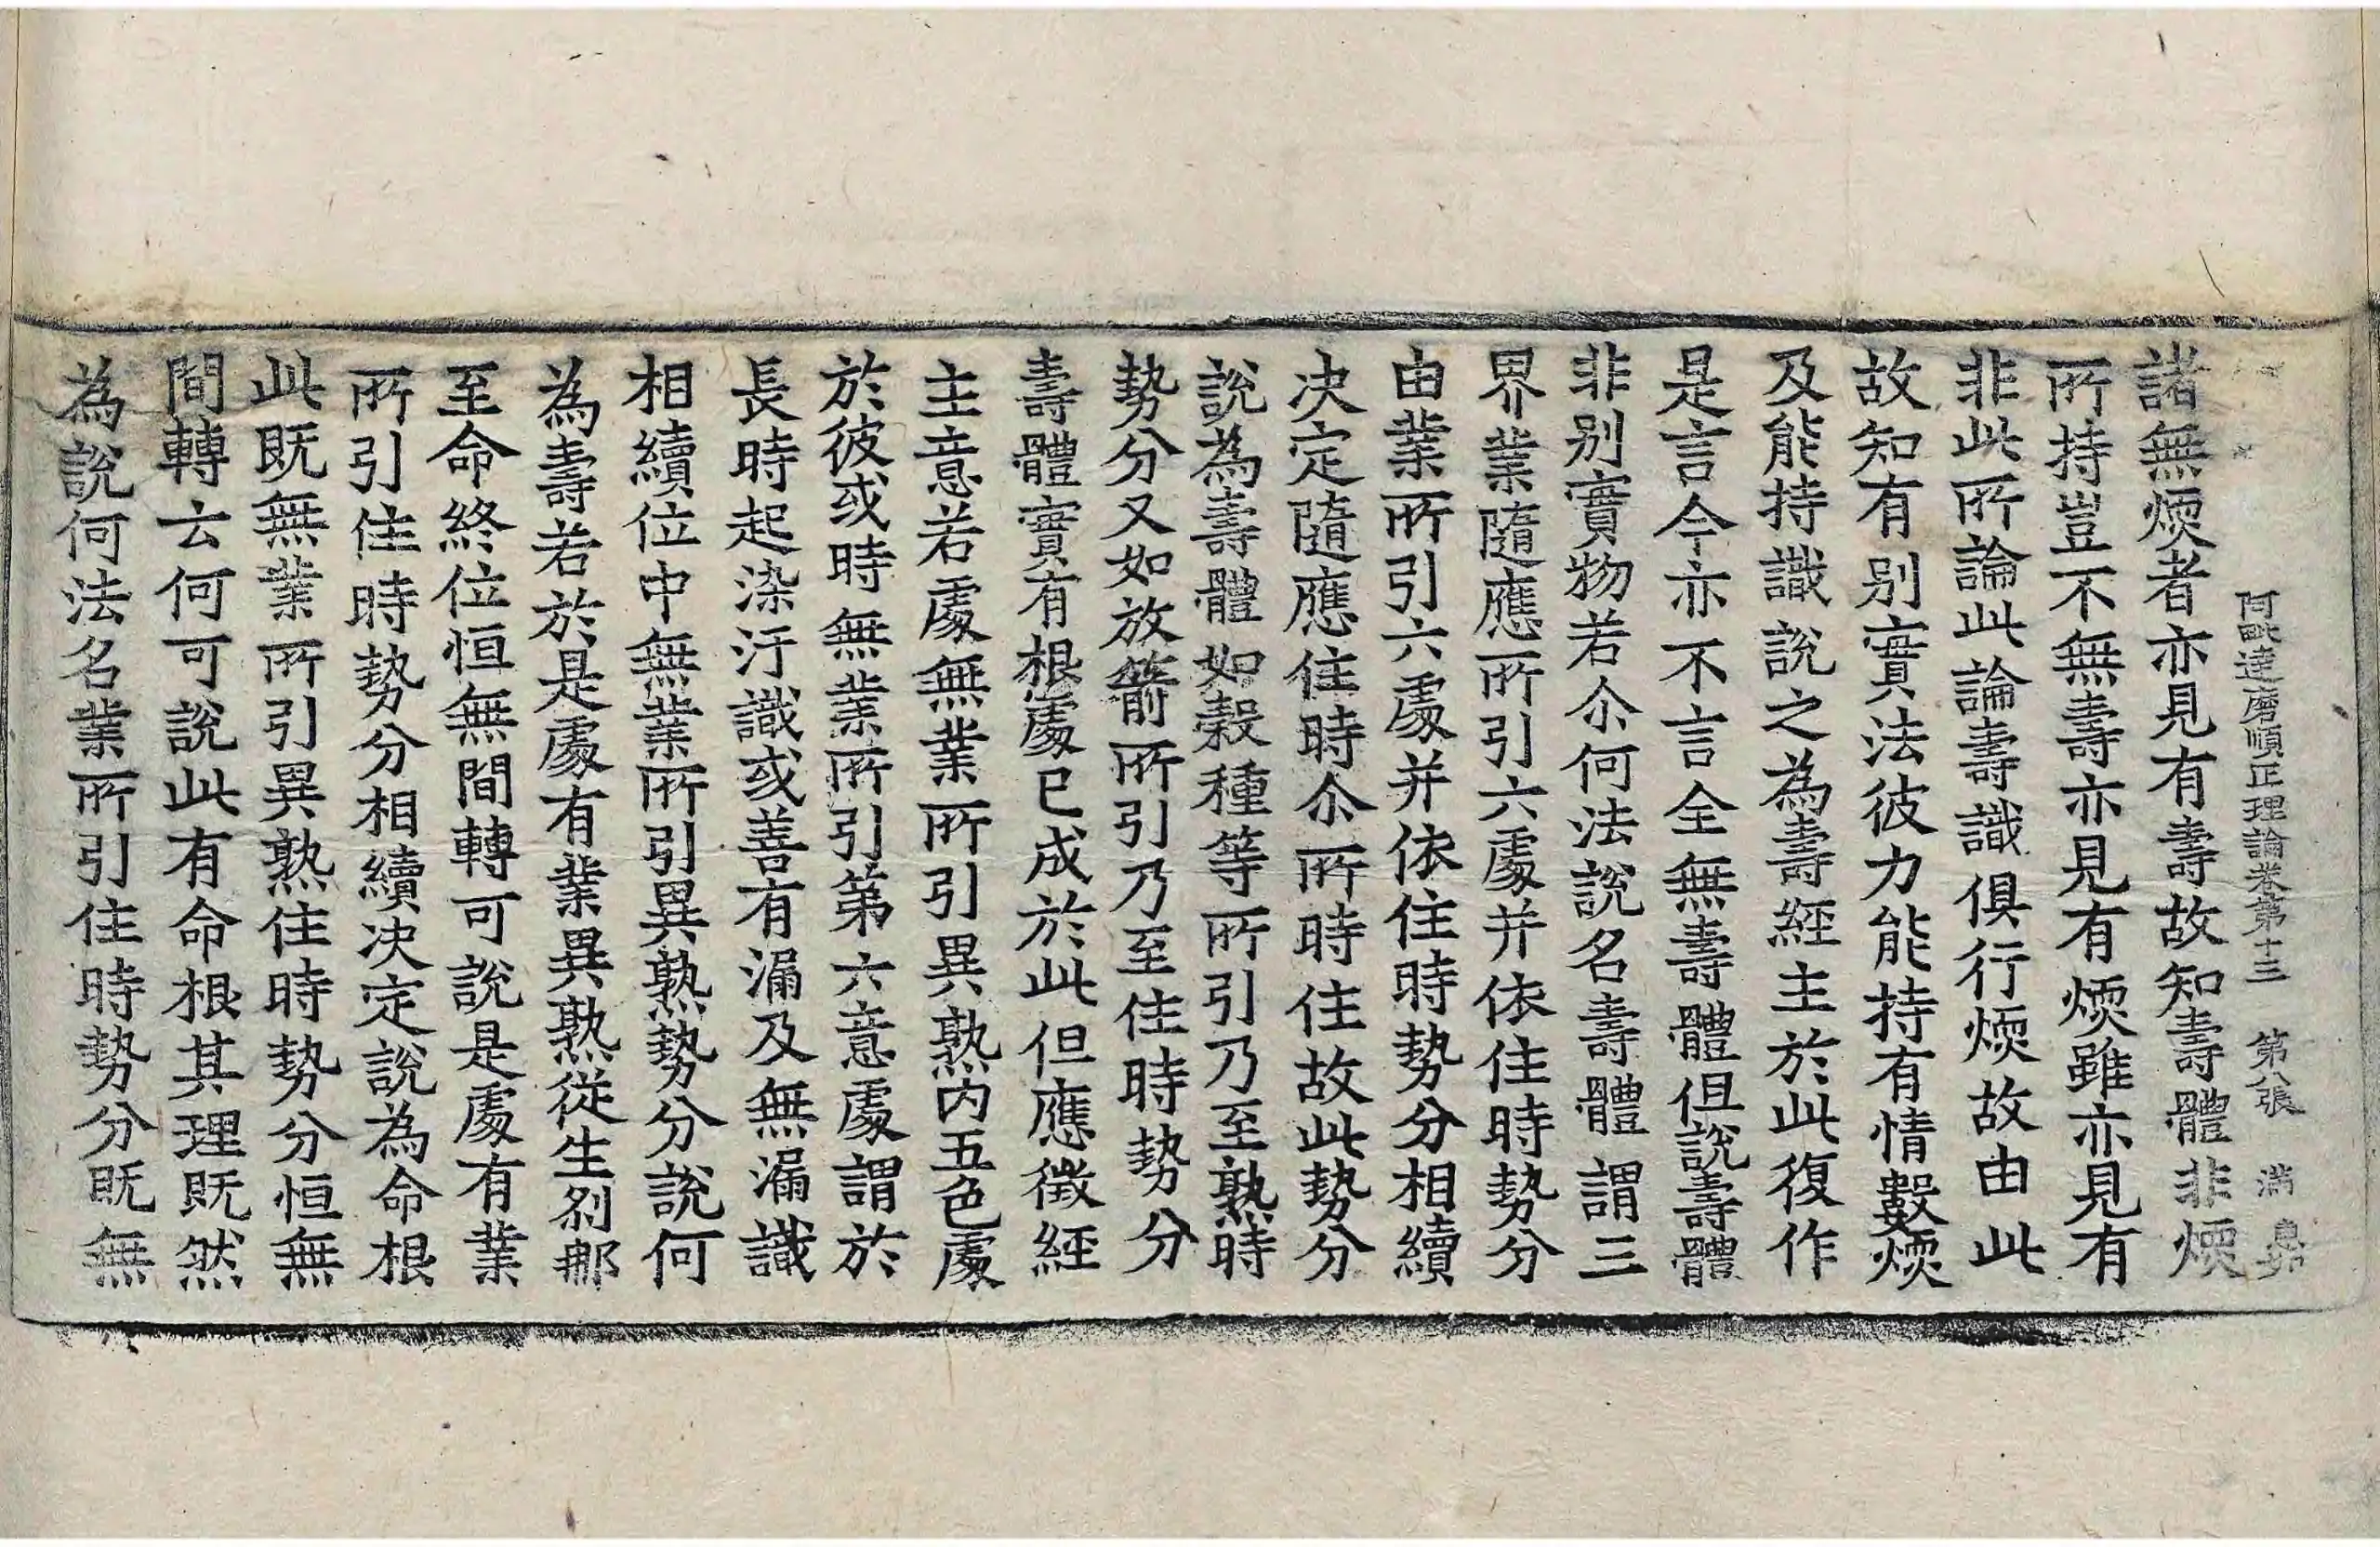 阿毗達磨順正理論卷第十三 第八張 滿
諸無煗者亦見有壽故知壽體非煗
所持豈不無壽亦見有煗雖亦見有
非此所論此論壽識俱行煗故由此
故知有別實法彼力能持有情數煗
及能持識說之為壽經主於此復作
是言今亦不言全無壽體但說壽體
非別實物若尒何法說名壽體謂三
界業隨應所引六處并依住時勢分
由業所引六處并依住時勢分相續
决定隨應住時尒所時住故此勢分
說為壽體如穀種等所引乃至熟時
勢分又如放箭所引乃至住時勢分
壽體實有根處已成於此但應徵經
主意若處無業所引異熟内五色處
於彼或時無業所引第六意處謂於
長時起染汙識或善有漏及無漏識
相續位中無業所引異熟勢分說何
為壽若於是處有業異熟從生剎那
至命終位恒無間轉可說是處有業
所引住時勢分相續决定說為命根
此既無業所引異熟住時勢分恒無
間轉云何可說此有命根其理既然
為說何法名業所引住時勢分既無